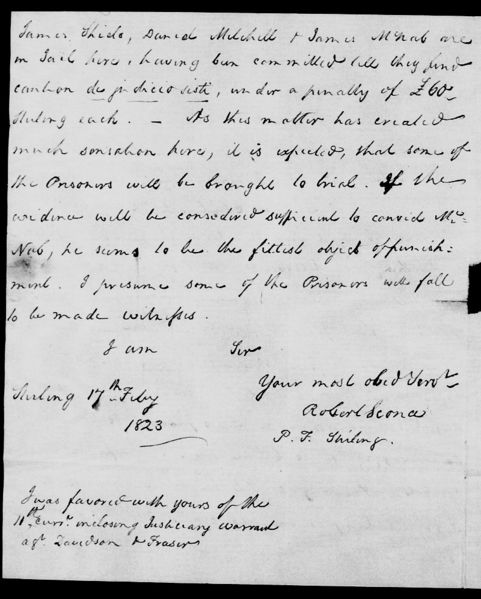 James Shields, Daniel Mitchell & James McNab are
in Jail here, having been committed till they find
caution de judicio sisti, under a penalty of £60
Sterling each. — As this matter has created
much sensation here, it is expected, that some of
the Prisoners will be brought to trial. If the
evidence will be considered sufficient to convict Mc=
Nab, he seems to be the fittest object of punish:
ment. I presume some of the Prisoners will fall
to be made witnesses.
I am Sir
Your most obed Servt
Stirling 17th Feby
1823
Robert
P. F. Stirling.
I was favored with yours of the
11th currt. inclosing Justiciary Warrant
agt. Davidson & Fraser